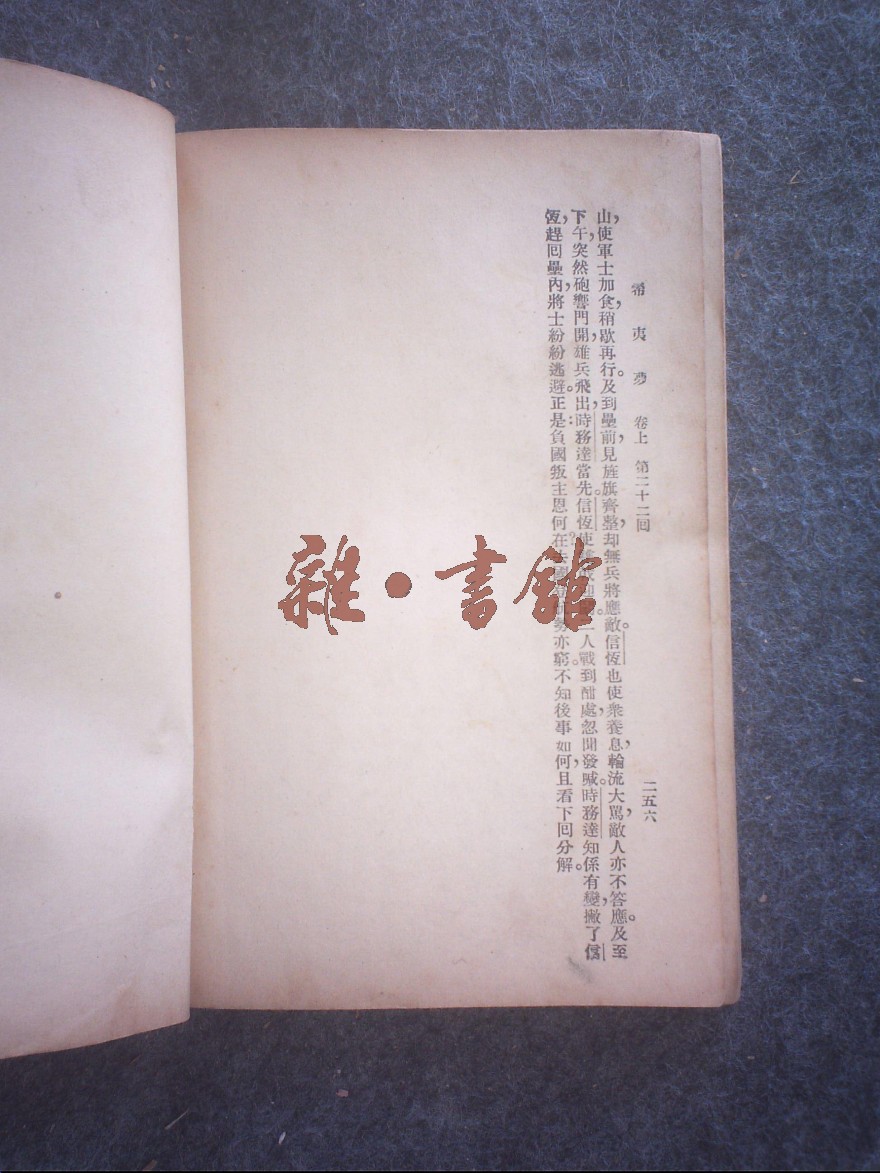 希夷夢 卷上 第二十二回 二五六
山，使軍士加食，稍歇再行。及到壘前，見旌旗齊整，却無兵將應敵。信恆也使衆養息，輪流大罵，敵人亦不答應。及至
下午，突然砲響門開，雄兵飛出，時務達當先。信恆使 二人戰到酣處，忽聞發喊。時務達知係有變，撇了信
恆，趕回壘內，將士紛紛逃避。正是：負國叛主恩何在？ 勢亦窮。不知後事如何，且看下回分解。
雜·書館